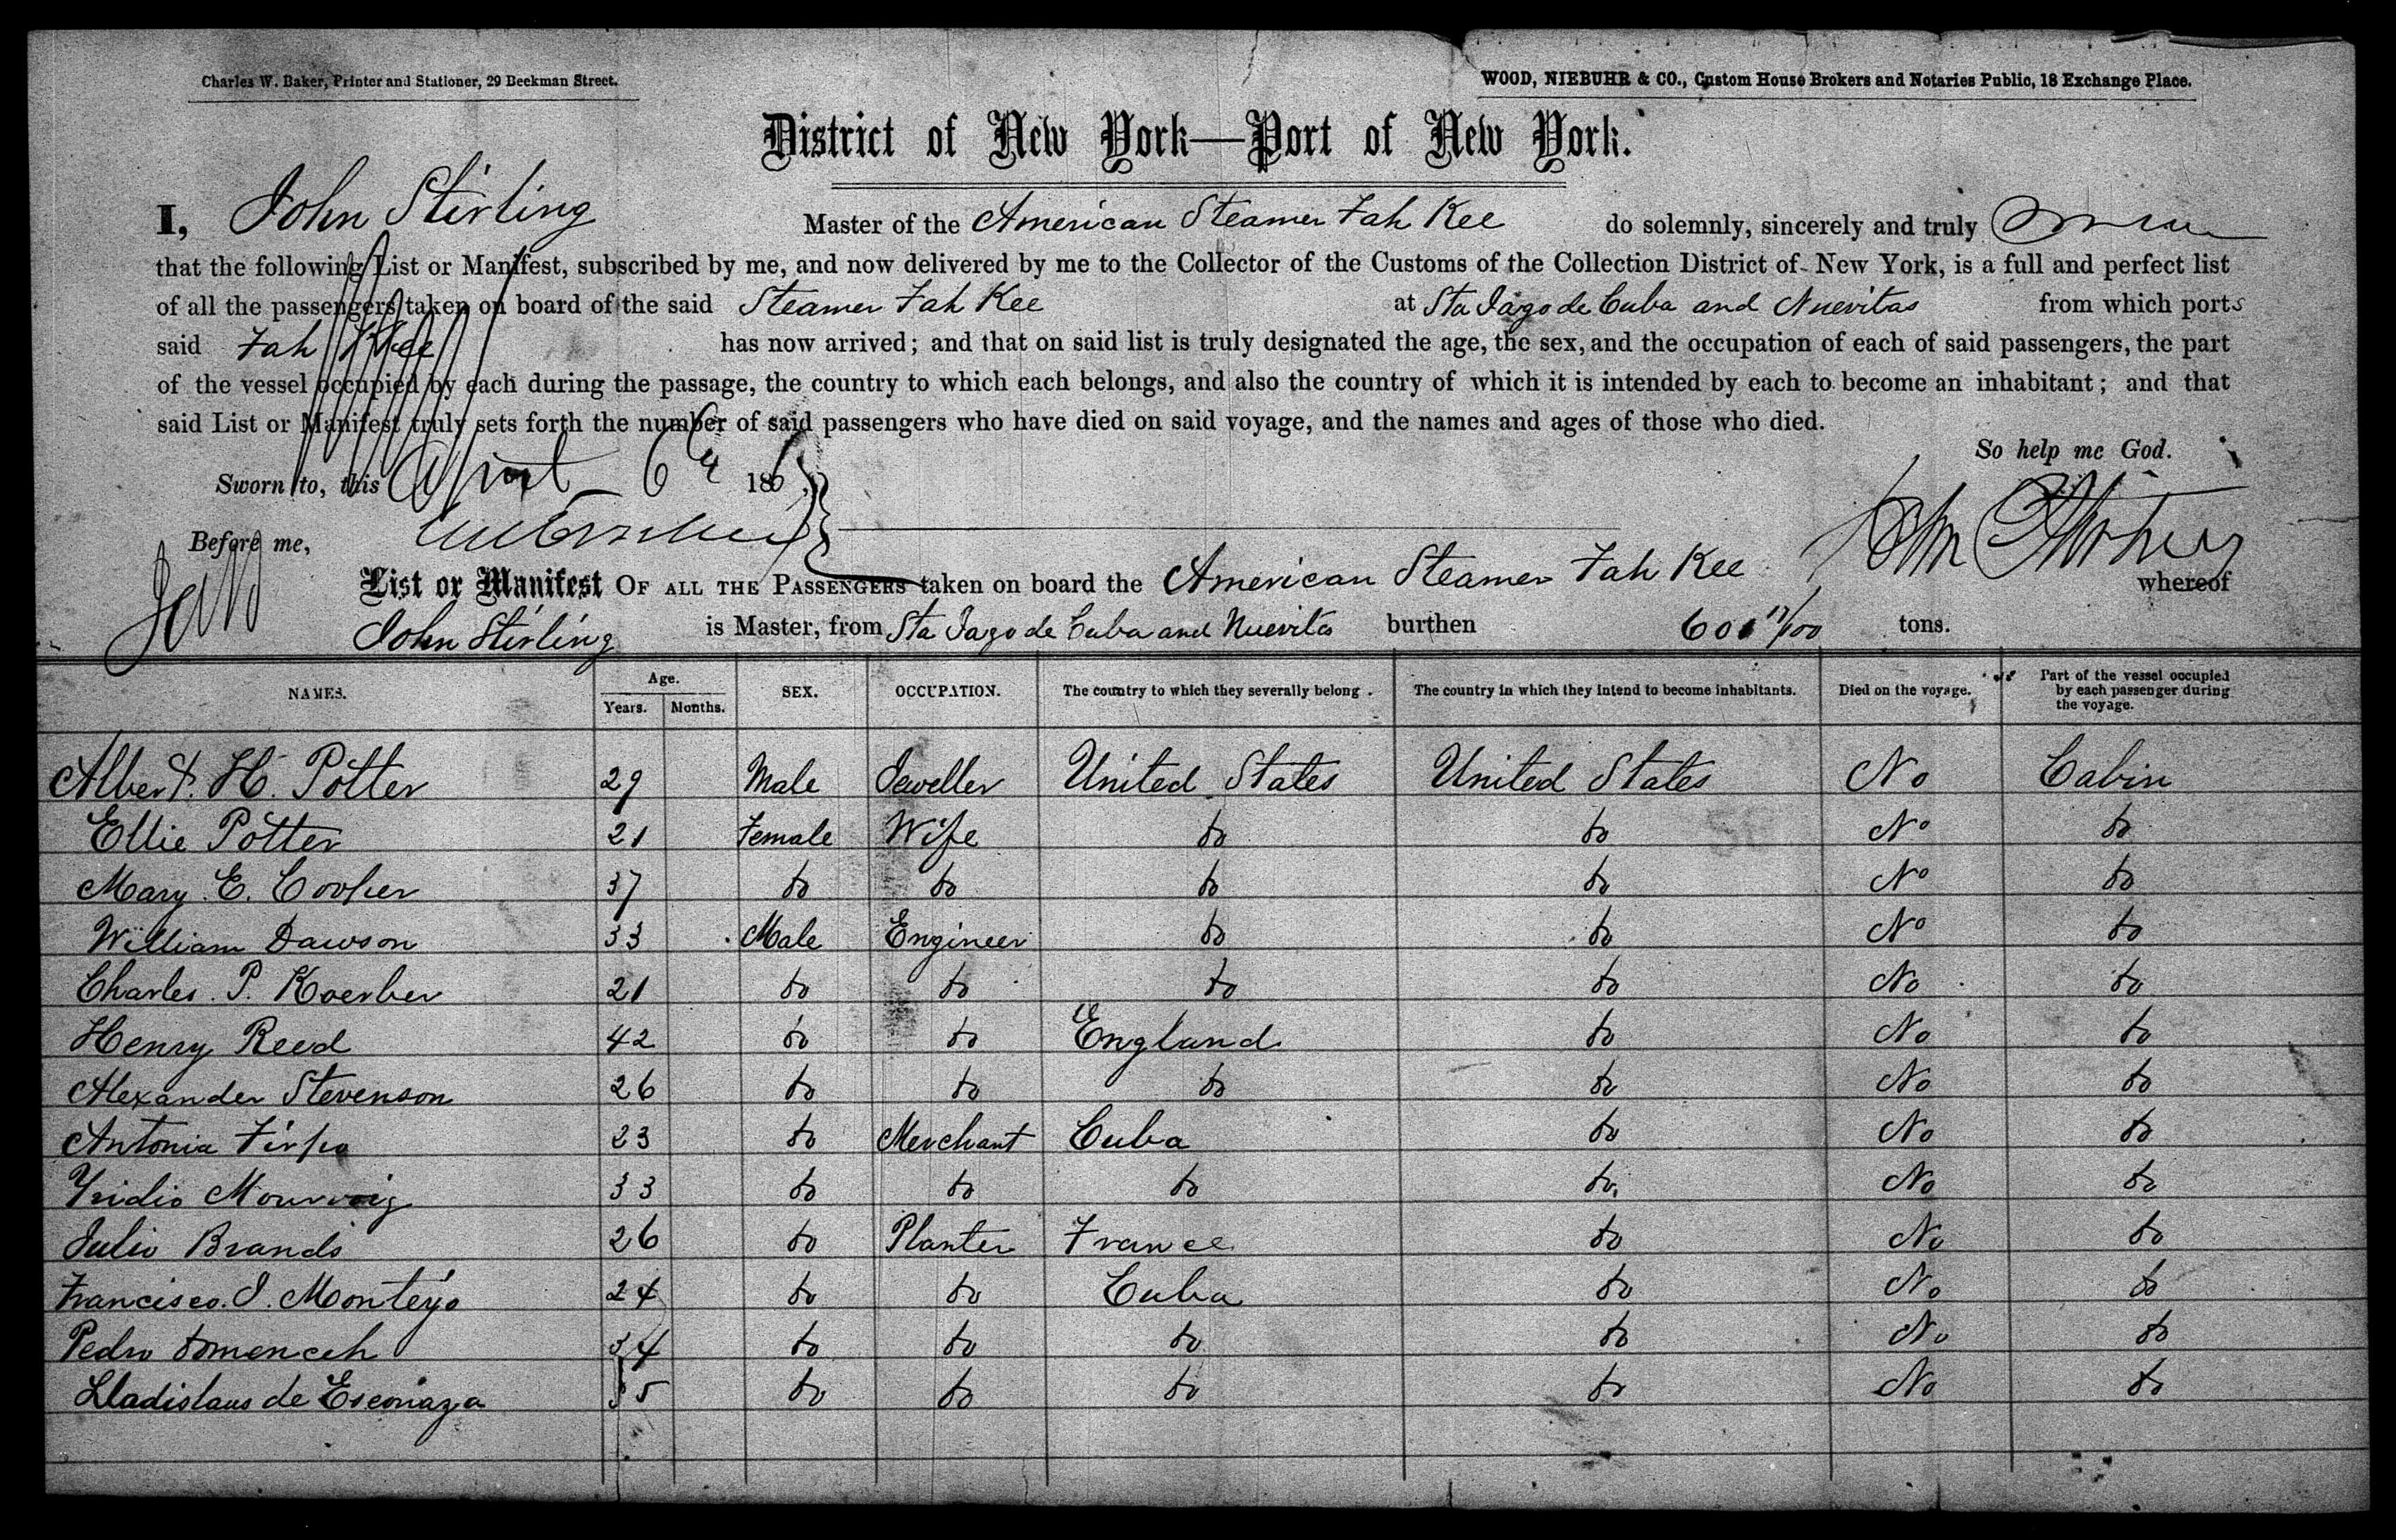 Charles W. Baker, Printer and Stationer, 29 Beekman Street.
WOOD, NIEBUHR & CO., Custom House Brokers and Notaries Public, 18 Exchange Place.
District of New York—Port of New York.
I, John Stirling Master of the American Steamer Fah Kee do solemnly, sincerely and truly
that the following List or Manifest, subscribed by me, and now delivered by me to the Collector of the Customs of the Collection District of New York, is a full and perfect list
of all the passengers taken on board of the said Steamer Fah Kee at Sta Jago de Cuba and Nuevitas from which ports
said Fah Kee has now arrived; and that on said list is truly designated the age, the sex, and the occupation of each of said passengers, the part
of the vessel occupied by each during the passage, the country to which each belongs, and also the country of which it is intended by each to become an inhabitant; and that
said List or Manifest truly sets forth the number of said passengers who have died on said voyage, and the names and ages of those who died.
So help me God.
Sworn to, this April 6th 186
Before me,
List or Manifest OF ALL THE PASSENGERS taken on board the American Steamer Fah Kee whereof
John Stirling is Master, from Sta Jago de Cuba and Nuevitas burthen 601 17/100 tons.
NAMES. Age. Years. Months. SEX. OCCUPATION. The country to which they severally belong. The country in which they intend to become inhabitants. Died on the voyage. Part of the vessel occupied by each passenger during the voyage.
Albert. H. Potter 29 Male Jeweller United States United States No Cabin
Ellie Potter 21 Female Wife do do No do
Mary. E. Cooper 37 do do do do No do
William Dawson 33 Male Engineer do do No do
Charles. P. Koerber 21 do do do do No do
Henry Reed 42 do do England do No do
Alexander Stevenson 26 do do do do No do
Antonia Firpo 23 do Merchant Cuba do No do
33 do do do do No do
Julio Brands 26 do Planter France do No do
Francisco. J. Montejo 24 do do Cuba do No do
Pedro Domenech 34 do do do do No do
Lladislaus de Escoriaza 35 do do do do No do